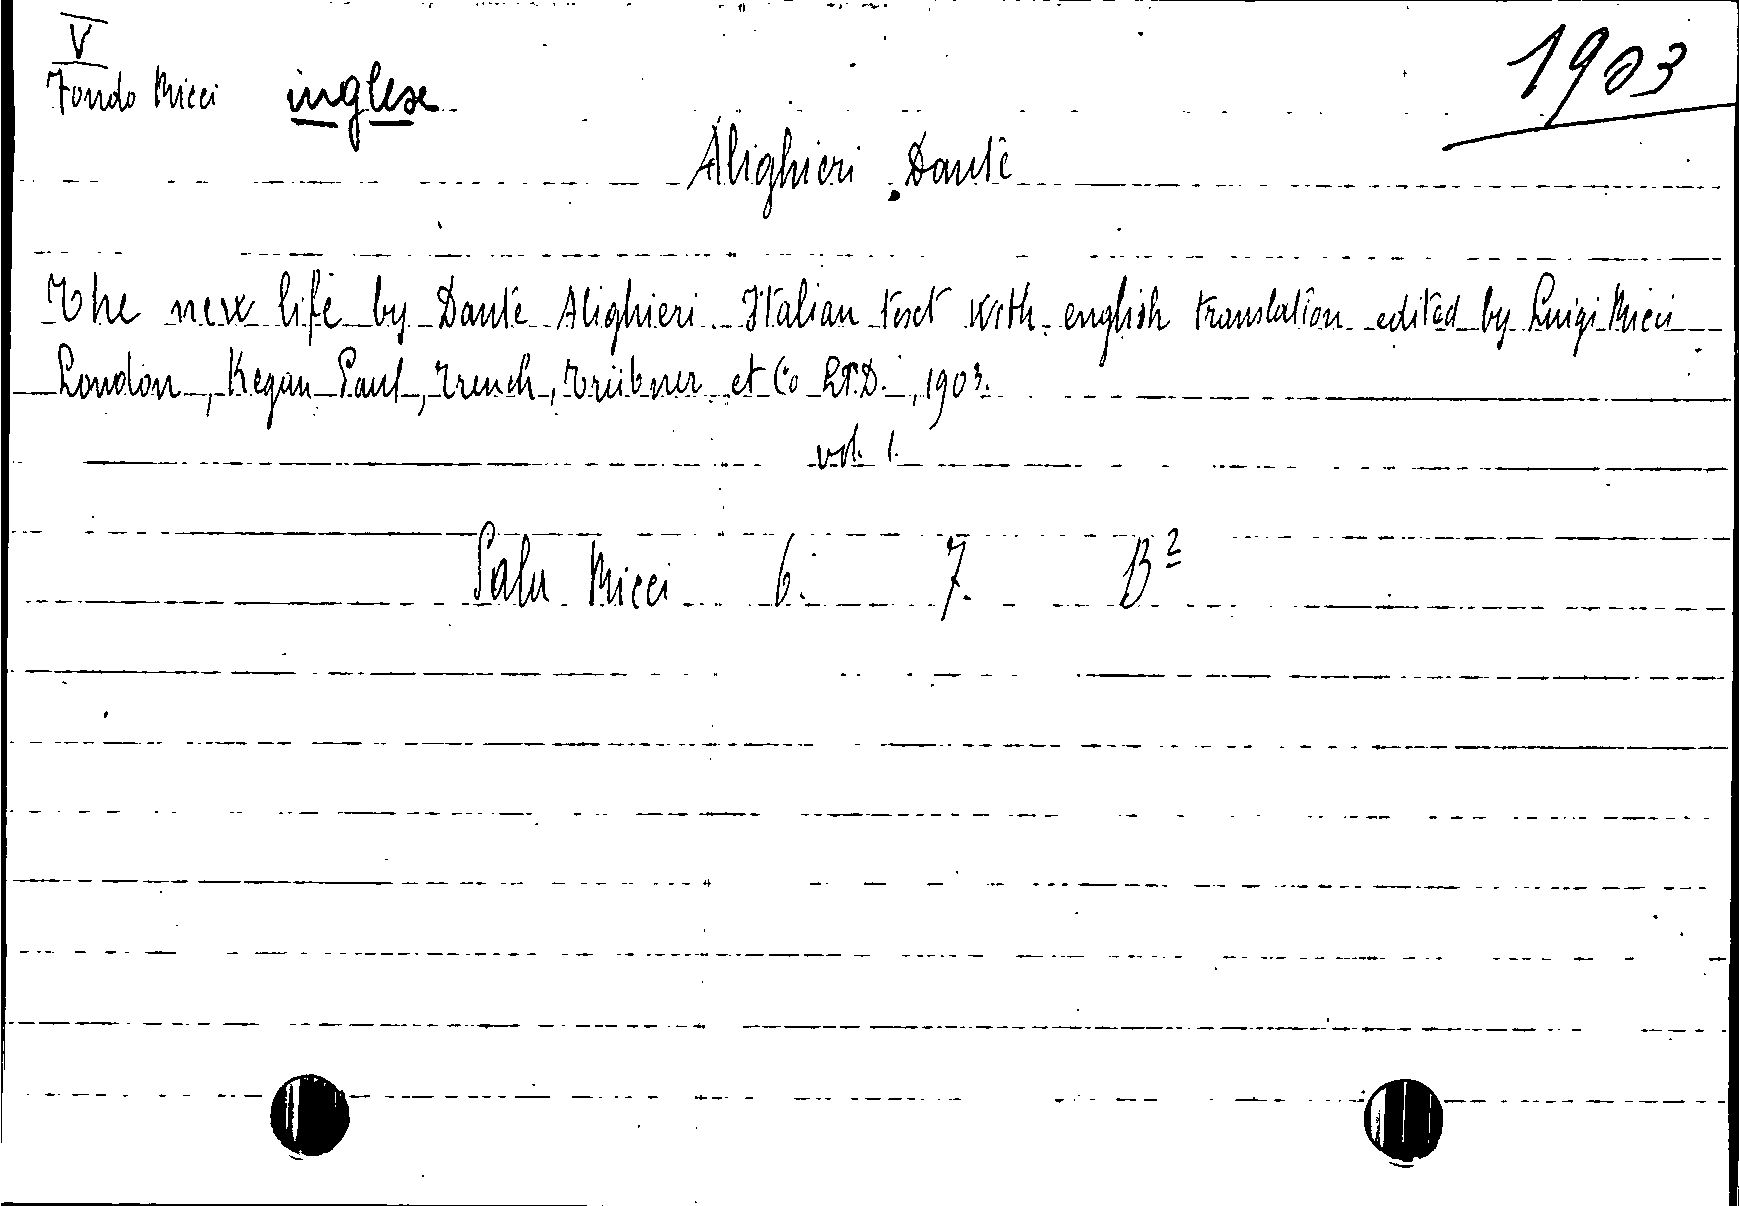 V
Fondo Ricci inglese 1903
Alighieri Dante
The new life by Dante Alighieri. Italian text with english translation edited by Luigi Ricci
London, Kegan Paul, Trench, Trübner et Co LT.D., 1903.
vol. 1.
Sala Ricci 6. 7. B²